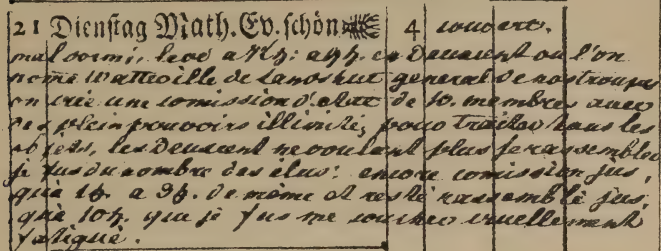 21 Dienstag Math. Ev. schön 4 couvert.
mal dormi, levé a 7 h: a 9 h. en Deuxcent ou l'on
nome Watteville de Landshut general de nos troupes
on crée une comission d'etat de 10. membres avec
des plein pouvoirs illimités, pour traiter tous les
objets, les Deuxcent ne voulant plus se rassembler
je fus du nombre des élus: encore comission jus,
qua 1 h. a 3 h. de même et resté rassemblé jus,
qua 10 h. que je fus me coucher cruellement
fatigué.